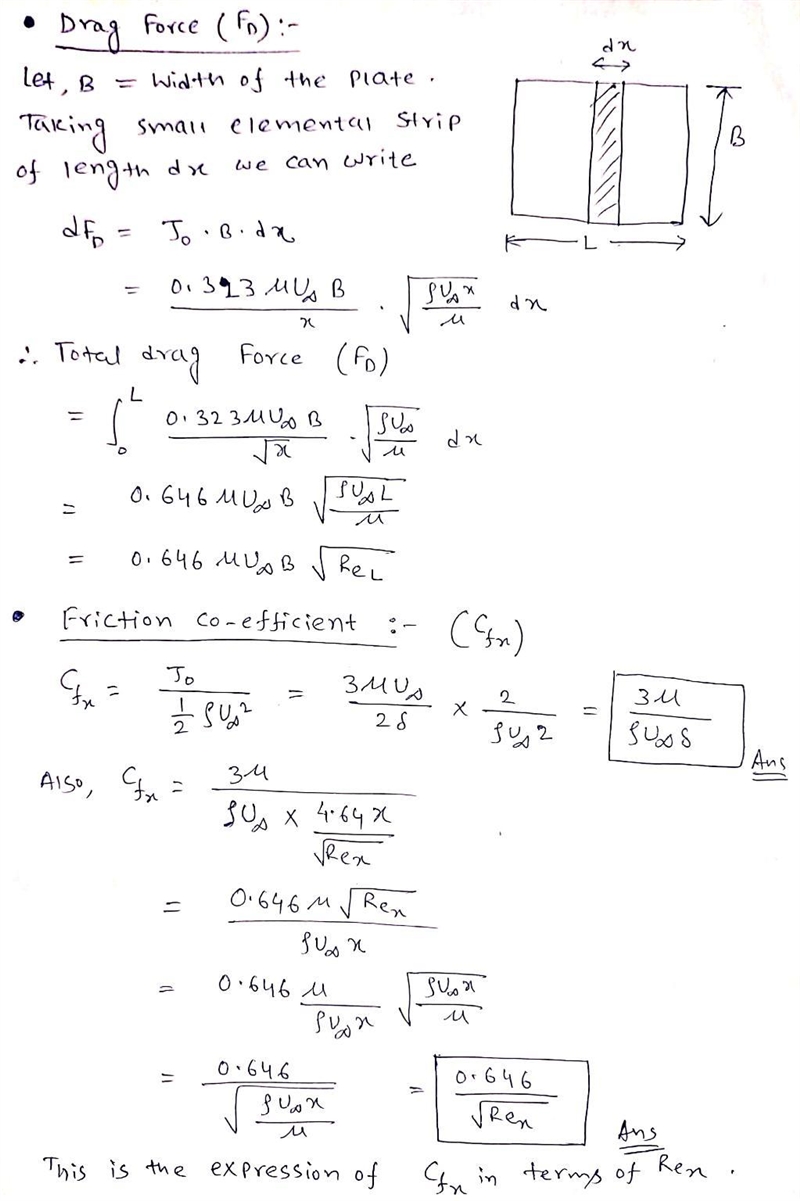 • Drag Force (F_D):-
Let, B = Width of the Plate.
Taking small elemental Strip
of length dx we can write
dx
B
L
dF_D = τ₀ · B · dx
= 0.323 μU∞ B / x · √(ρU∞x / μ) dx
∴ Total drag Force (F_D)
= ∫₀^L 0.323 μU∞ B / √x · √(ρU∞ / μ) dx
= 0.646 μU∞ B √(ρU∞L / μ)
= 0.646 μU∞ B √Re_L
• Friction co-efficient :- (C_fx)
C_fx = τ₀ / (½ ρU∞²) = 3μU∞ / 2δ × 2 / ρU∞2 = 3μ / ρU∞δ
Ans
Also, C_fx = 3μ / (ρU∞ × 4.64x / √Re_x)
= 0.646 μ √Re_x / ρU∞x
= 0.646 μ / ρU∞x √(ρU∞x / μ)
= 0.646 / √(ρU∞x / μ) = 0.646 / √Re_x
Ans
This is the expression of C_fx in terms of Re_x.